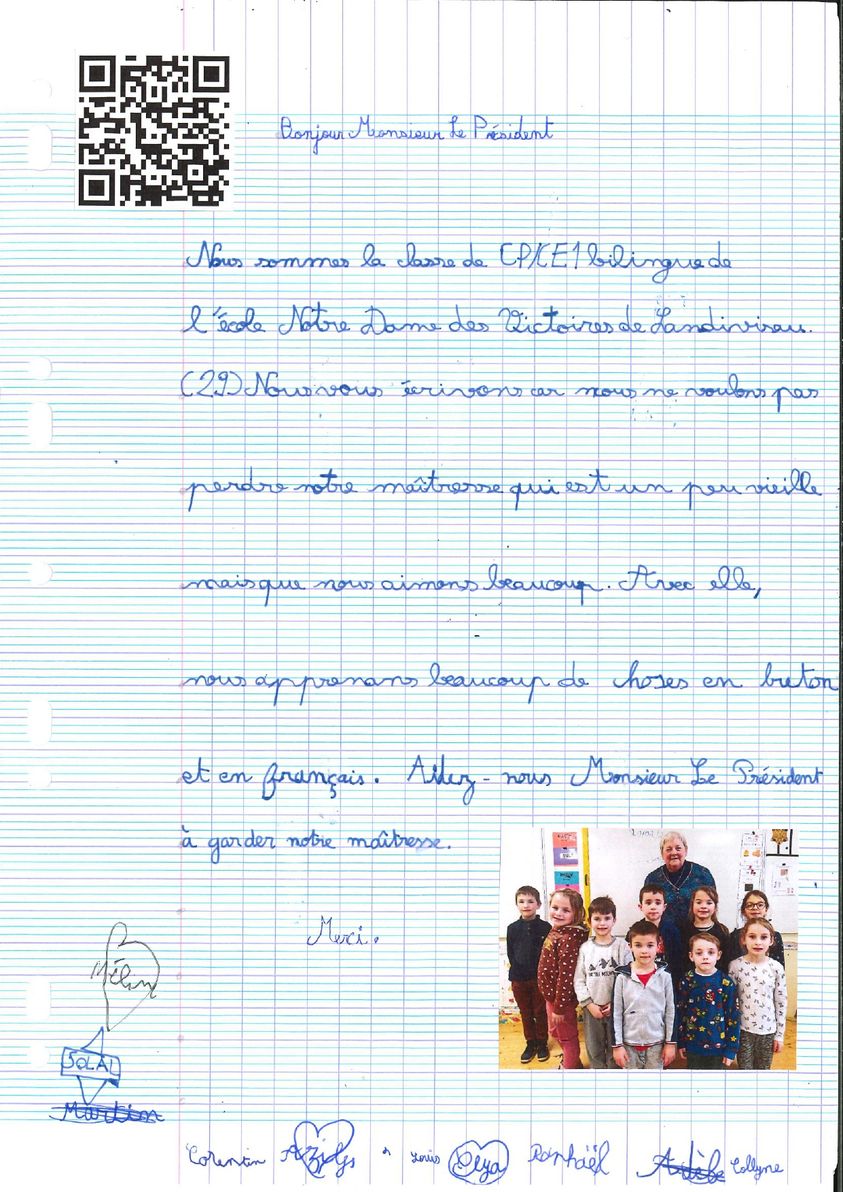 Bonjour Monsieur Le Président
Nous sommes la classe de CP/CE1 bilingue de
l'école Notre Dame des Victoires de Landivisau.
(29) Nous vous écrivons car nous ne voulons pas
perdre notre maîtresse qui est un peu vieille
mais que nous aimons beaucoup. Avec elle,
nous apprenans beaucoup de choses en breton
et en français. Aidez-nous Monsieur Le Président
à garder notre maîtresse.
Merci.
SOLAL
Martin
Corentin
Louis
Raphaël
Adèle